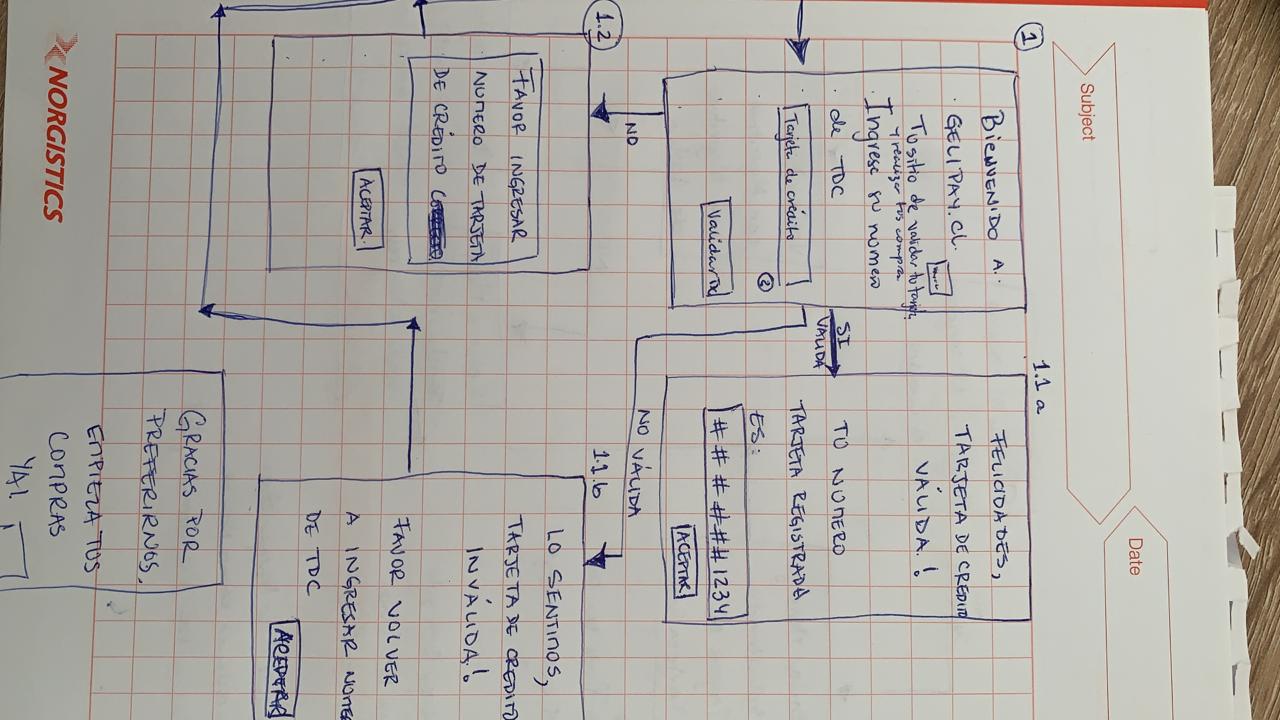 Subject
Date
1
Bienvenido A..
GELIPAY.CL.
Tu sitio de validar tu tarjeta
y realizar tus compras
Ingrese su numero
de TDC
Tarjeta de crédito
Validar TDC
SI
VALIDA
NO
1.1 a
FELICIDADES,
TARJETA DE CREDITO
VÁLIDA.!
TU NUMERO
TARJETA REGISTRADA
ES:
# # # # # # 1234
ACEPTAR
NO VÁLIDA
1.2
FAVOR INGRESAR
NUMERO DE TARJETA
DE CRÉDITO
ACEPTAR.
1.1.b
LO SENTIMOS,
TARJETA DE CREDITO
INVÁLIDA.!
FAVOR VOLVER
A INGRESAR NUME
DE TDC
ACEPTAR
GRACIAS POR
PREFERIRNOS.
EMPIEZA TUS
COMPRAS
YA!.
NORGISTICS